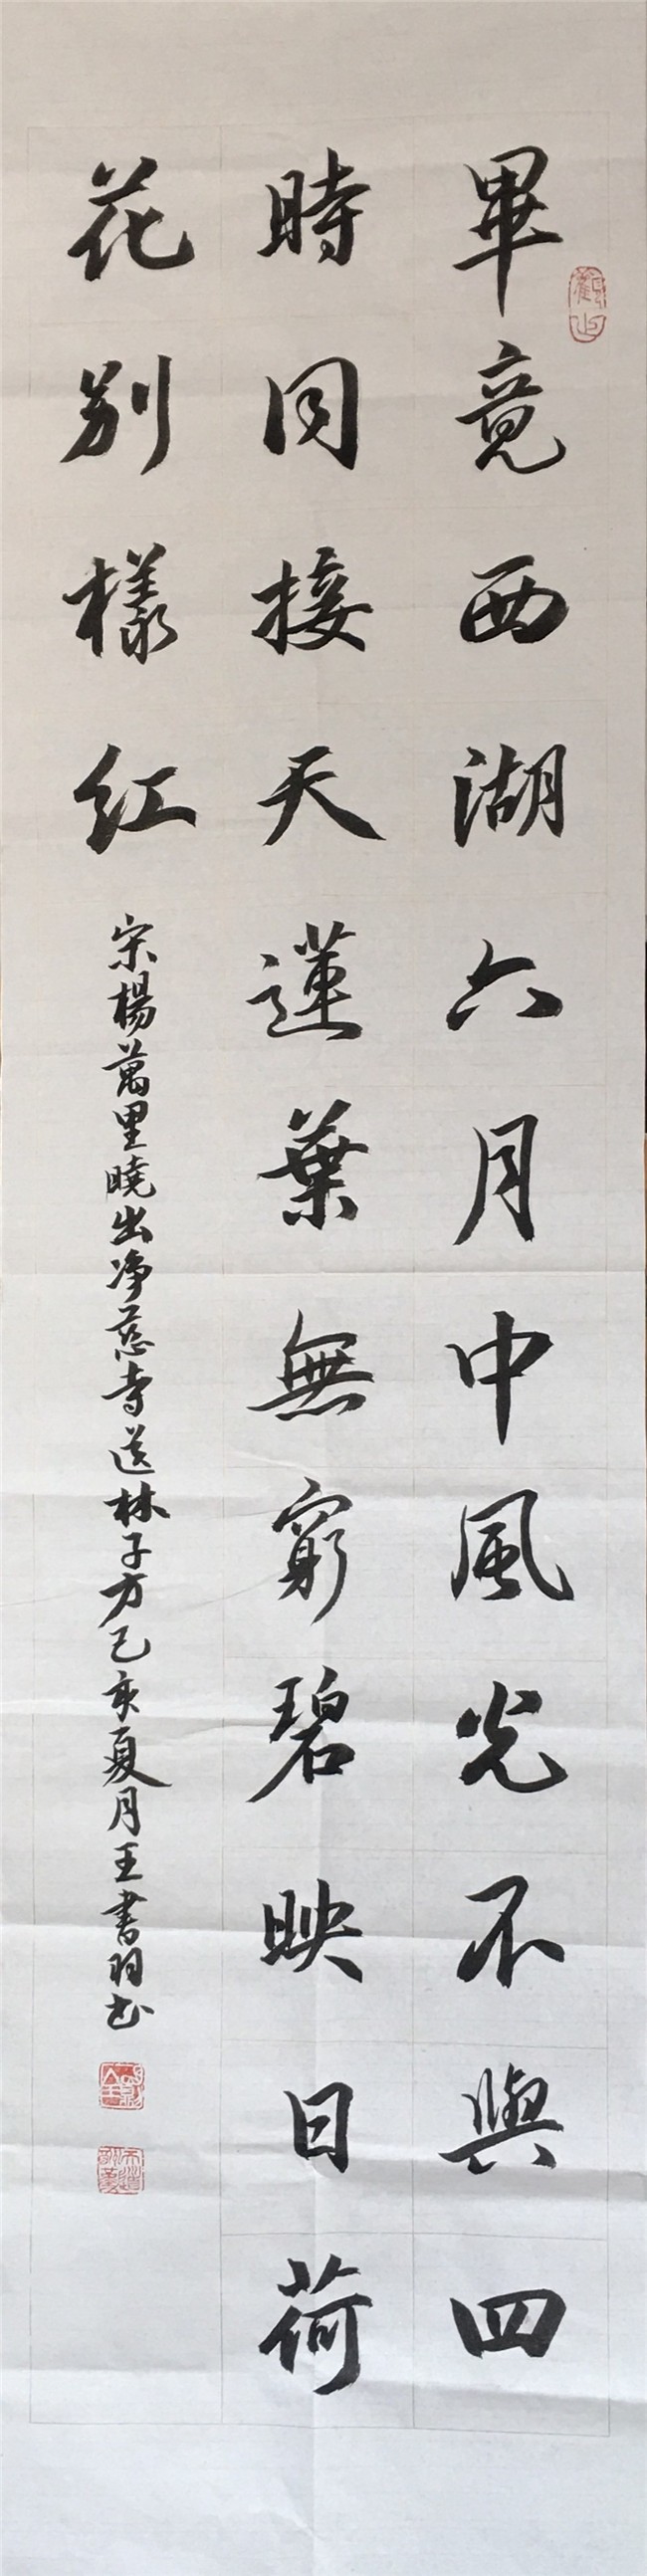 畢竟西湖六月中風光不與四
時同接天蓮葉無窮碧映日荷
花別樣紅
宋楊萬里曉出净慈寺送林子方己亥夏月王書羽書